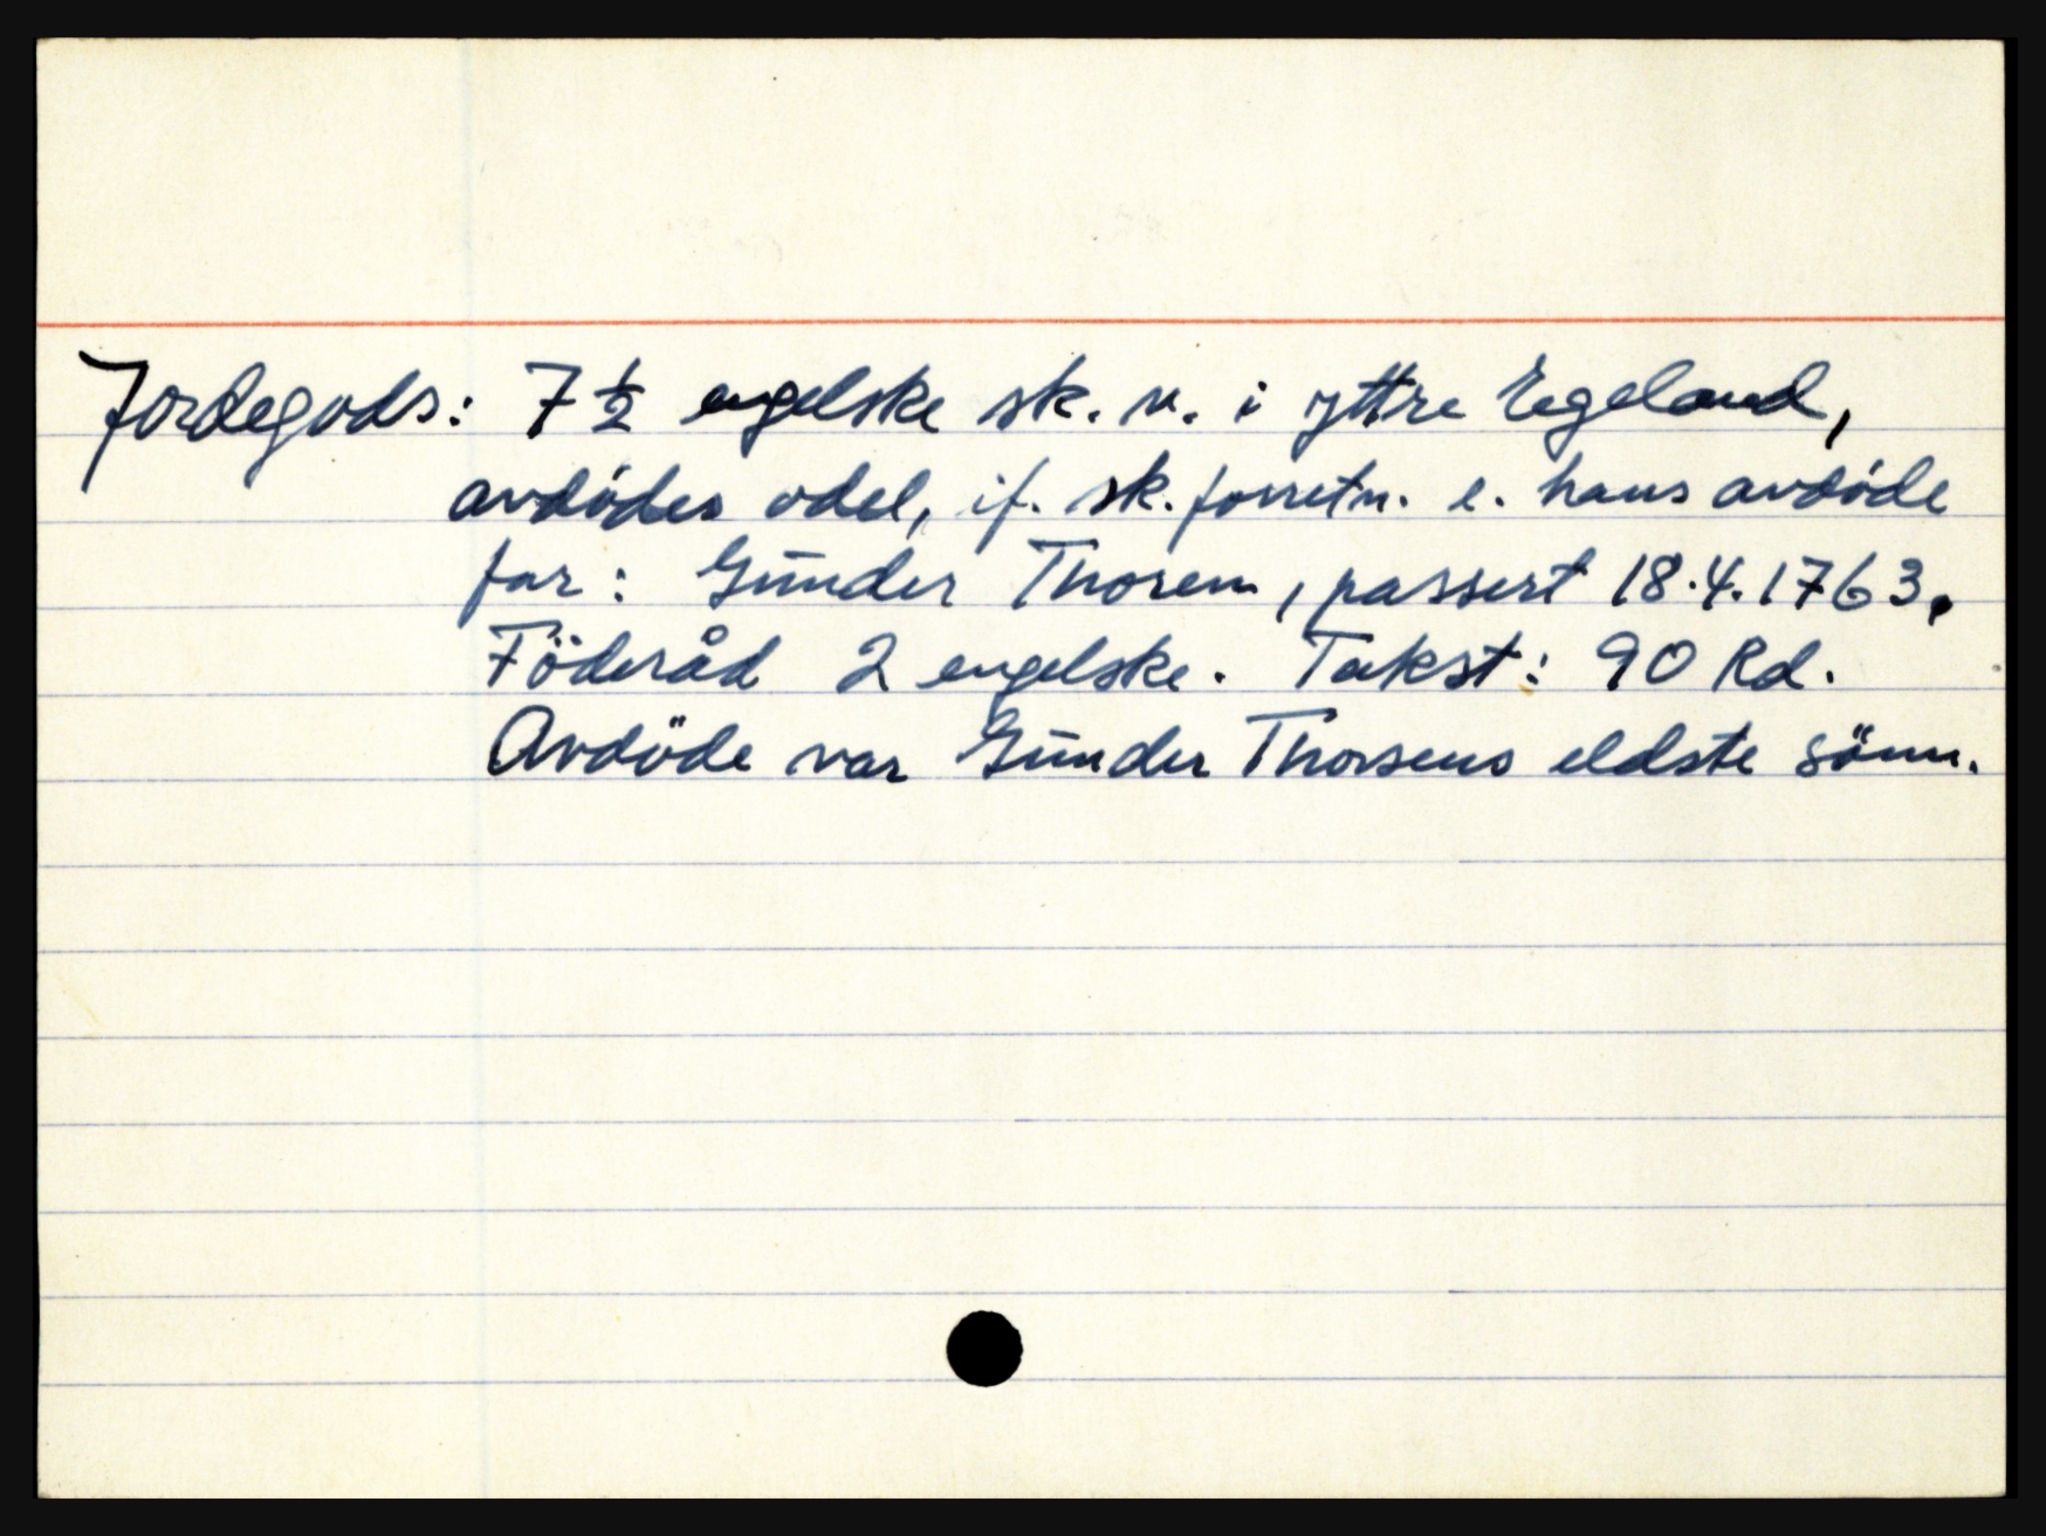 Jordegods: 7 ½ engelske sk. v. i yttre Egeland,
avdödes odel, if. sk. forretn. e. hans avdöde
far: Gunder Thorsen, passert 18.4.1763.
Föderåd 2 engelske. Takst: 90 Rd.
Avdöde var Gunder Thorsens eldste sönn.